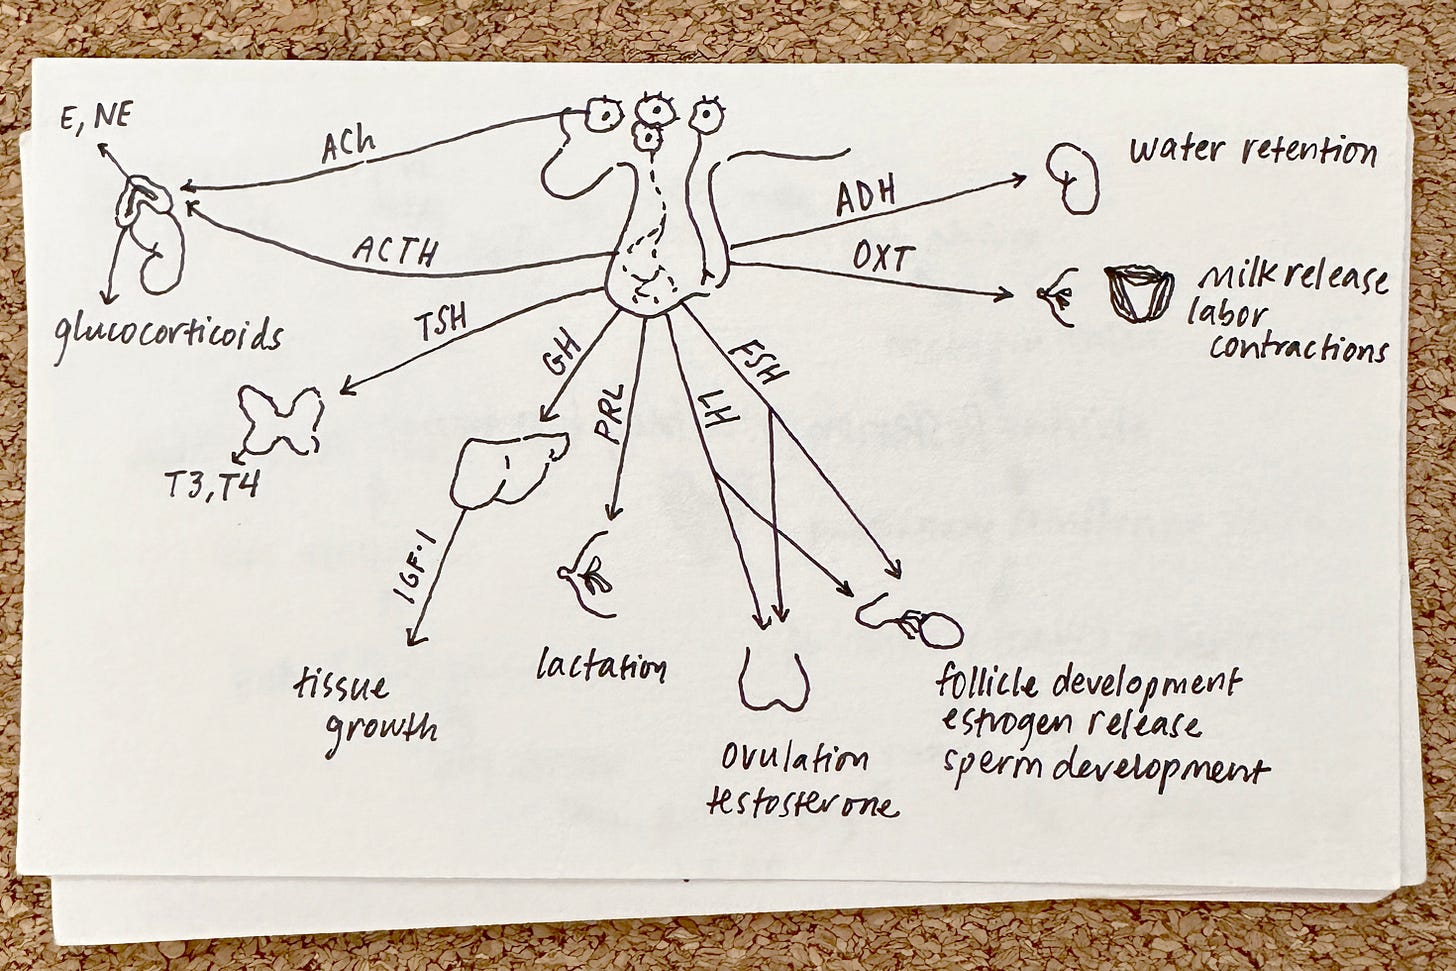 E, NE
ACh
ACTH
glucocorticoids
TSH
T3, T4
GH
IGF-1
tissue
growth
PRL
lactation
LH
FSH
ovulation
testosterone
follicle development
estrogen release
sperm development
ADH
water retention
OXT
milk release
labor
contractions